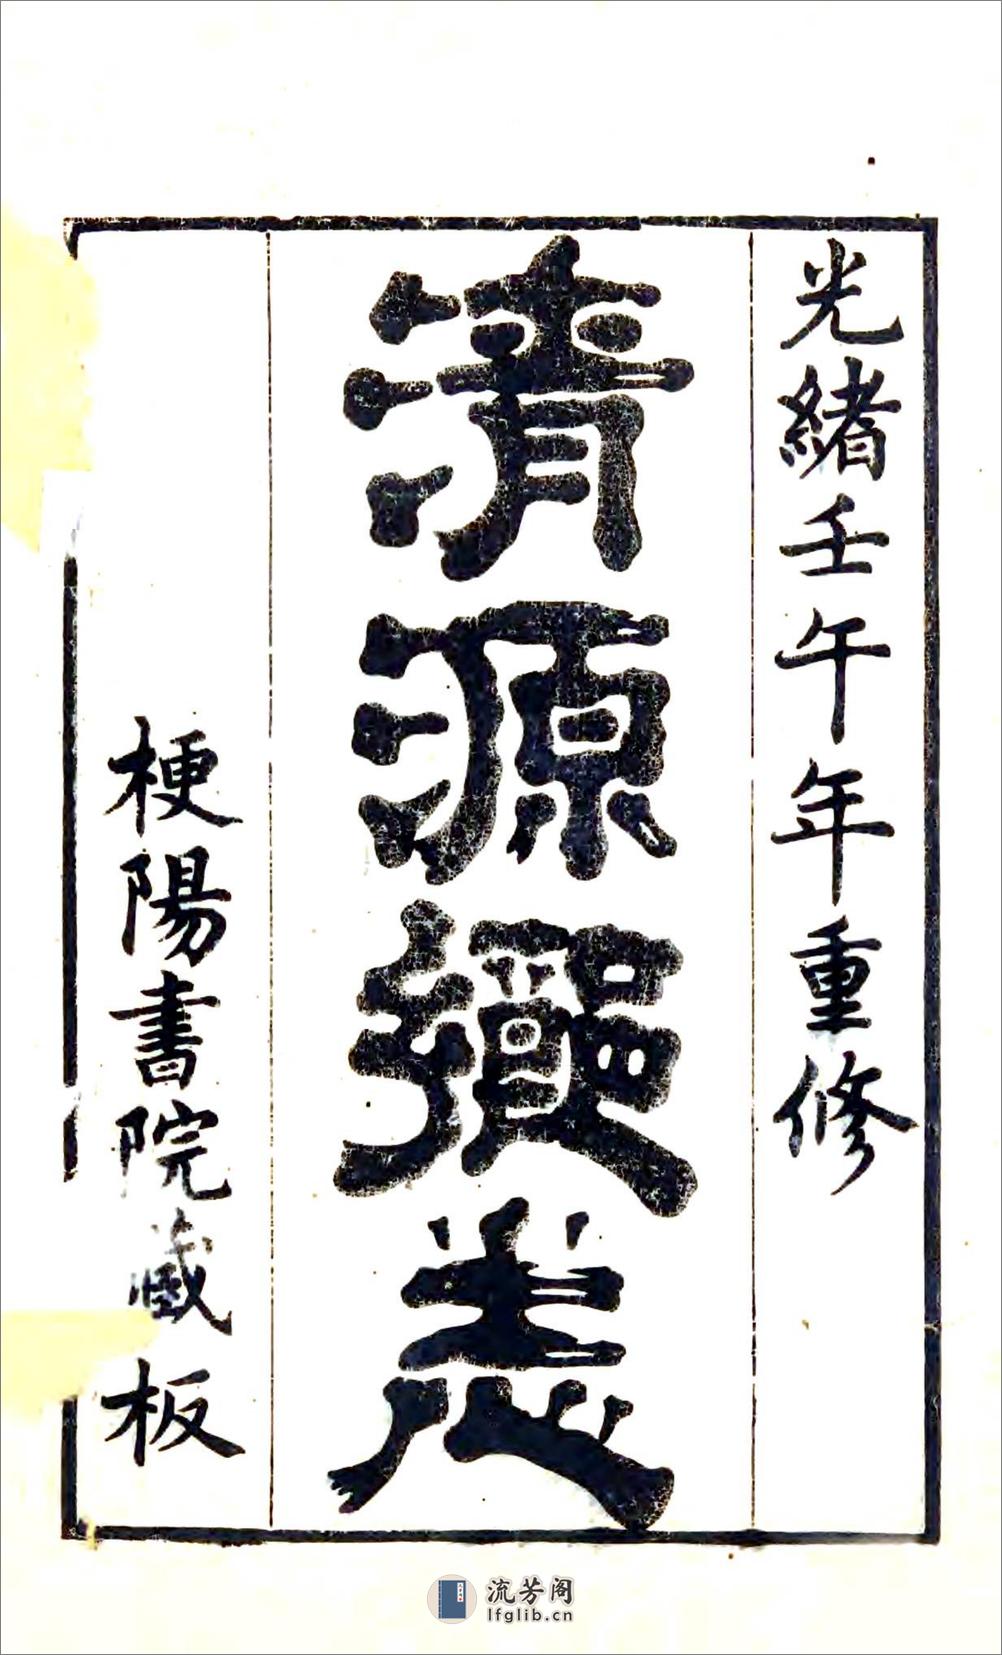 光緒壬午年重修
清源鄉志
梗陽書院藏板
流芳阁
lfglib.cn